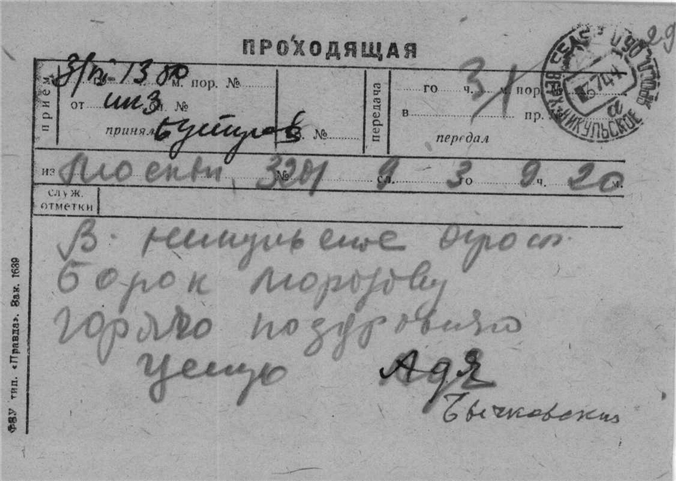 29
ПРОХОДЯЩАЯ
ПРИЕМ
3/VI 13 00 м. пор. №
от №
принял №
передача
го ч. м. пор.
в пр.
передал
НИКУЛЬСКОЕ
из Москвы № 3201 9 сл. 3 го 9 ч. 20 м.
служ.
отметки
В. Никульское Яросл
Борок Морозову
Горячо поздравляю
Целую Адя
Бычковский
ФВУ тип. «Правда». Зак. 1639